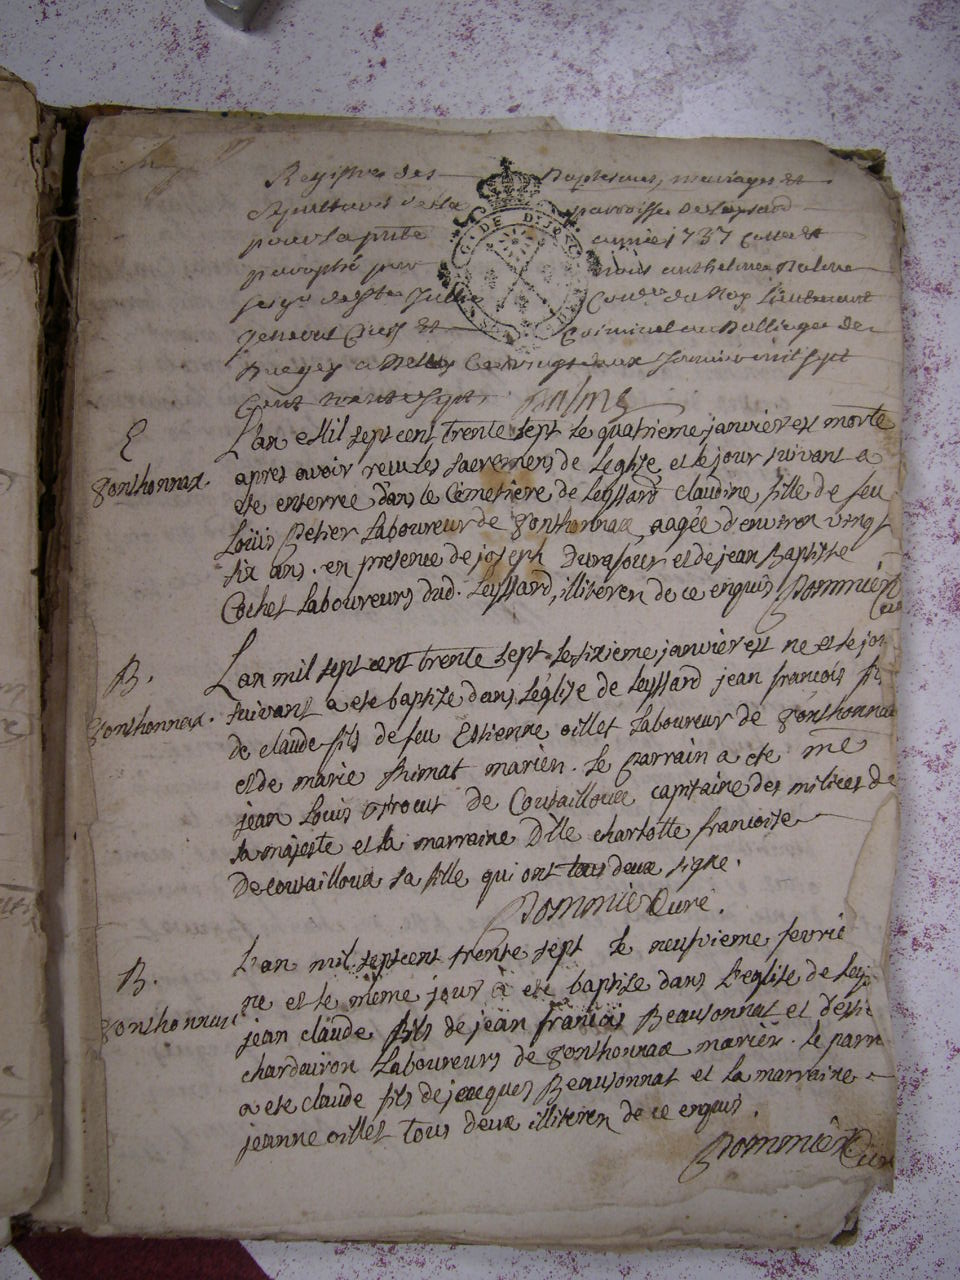 Registres des Baptesmes, mariages et
Sepultures de la paroisse de Leyssard
pour la pnte année 1737 Cotté et
paraphé par nous anthelme Balme
Conér du Roy Lieutenant
General Civil et Criminel au Balliage de
Bugey a Belley Ce vingt deux Janvier mil sept
Cent trente sept. Balme
GÉN. DE DIJON
E
gonthonnax.
L'an Mil sept cent trente sept le quatrieme janvier est morte
apres avoir recu les sacremens de L'eglise et le jour suivant a
ete enterree dans le Cemetiere de Leyssard claudine fille de feu
Loüis Laboureur de gonthonnax, aagée d'environ vingt
six ans. en presence de joseph Durafour et de jean Baptiste
Cochet Laboureurs dud. Leyssard, illiteren de ce enquis Pommier Cu
B.
gonthonnax.
L'an mil sept cent trente sept le sixieme janvier est ne et le jou
suivant a ete baptize dans L'église de Leyssard jean francois fi
de claude fils de feu Estienne oillet Laboureur de gonthonnax
et de marie mariën. Le parrain a ete mre
jean Louis de Coutailloux capitaine des milices de
sa majeste et la marraine Dlle charlotte francoise
De coutailloux sa fille qui ont tous deux signe.
Pommier Curé.
B.
gonthonnax
L'an mil sept cent trente sept le neufvieme fevrie
ne et le même jour a ete baptize dans L'eglise de Leyss
jean claude fils de jean francois Beausonnat et d'esti
chardeiron Laboureurs de gonthonnax mariën. le parr
a ete claude fils de jacques Beausonnat et la marraine
jeanne oillet tous deux illiteren de ce enquis.
Pommier Cur